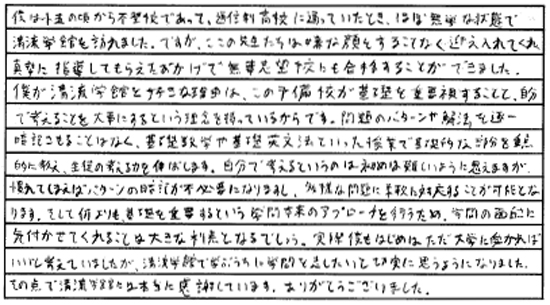 僕は小五の頃から不登校であって、通信制高校に通っていたとき、ほぼ無学な状態で
清流学館を訪れました。ですが、ここの先生たちは嫌な顔をすることなく迎え入れてくれ、
真摯に指導してもらえたおかげで無事志望校にも合格することができました。
僕が清流学館を好きな理由は、この予備校が基礎を重要視することと、自分
で考えることを大事にするという理念を持っているからです。問題のパターンや解法を逐一
暗記させることはなく、基礎数学や基礎英文法といった授業で基礎的な部分を重点
的に教え、生徒の考える力を伸ばします。自分で考えるというのは初めは難しいように思えますが、
慣れてしまえばパターンの暗記が不必要になりますし、多様な問題に柔軟に対応することが可能とな
ります。そして何よりも基礎を重要するという学問本来のアプローチを行うため、学問の面白に
気付かせてくれることは大きな利点となるでしょう。実際僕もはじめはただ大学に受かれば
いいと考えていましたが、清流学館で学ぶうちに学問を志したいと切実に思うようになりました。
その点で清流学館には本当に感謝しています。ありがとうございました。